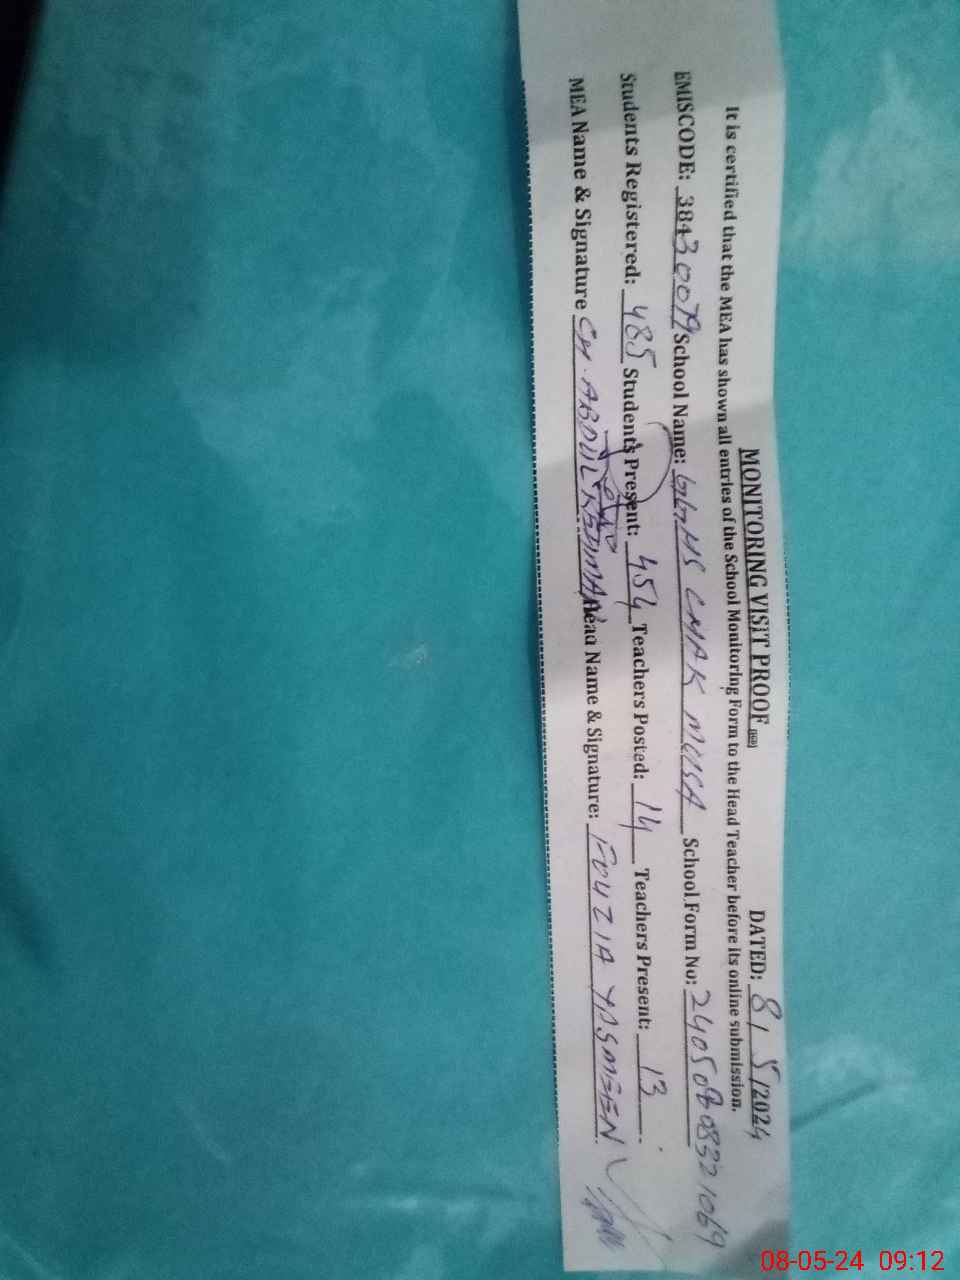 MONITORING VISIT PROOF DATED: 8/5/2024
It is certified that the MEA has shown all entries of the School Monitoring Form to the Head Teacher before its online submission.
EMISCODE: 38430079 School Name: GGHS CHAK MUSA School Form No: 24050808321069
Students Registered: 485 Students Present: 454 Teachers Posted: 14 Teachers Present: 13
MEA Name & Signature CH. ABDUL REHMAN Head Name & Signature: FOUZIA YASMEEN
08-05-24 09:12